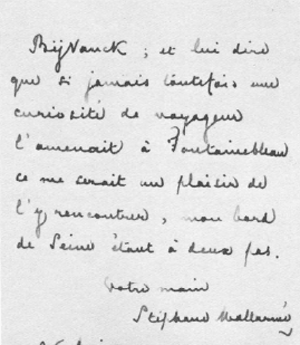 Bijvanck ; et lui dire
que si jamais toutefois une
curiosité de voyageur
l'amenait à Fontainebleau
ce me serait un plaisir de
l'y rencontrer, mon bord
de Seine étant à deux pas.
Votre main
Stéphane Mallarmé